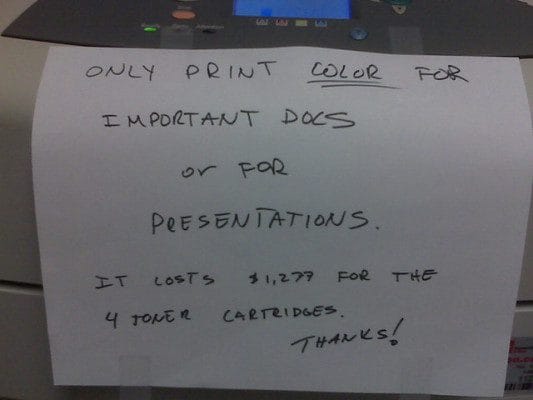 ONLY PRINT COLOR FOR
IMPORTANT DOCS
or FOR
PRESENTATIONS.
IT COSTS $1,277 FOR THE
4 TONER CARTRIDGES.
THANKS!